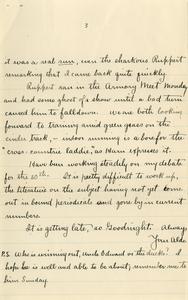 3
it was a real run, even the sharkous Ruppert
remarking that I came back quite quickly.
Ruppert ran in the Armory Meet Monday
and had some sort of a show until a bad turn
caused him to fall down. We are both looking
forward to training amid green grass on the
cinder track, – indoor running is a bore for the
"cross-country laddie," as Ham expresses it.
Have been working steadily on my debate
for the 20th. It is pretty difficult to work up,
the literature on the subject having not yet come
out in bound periodicals and gone by in current
numbers.
It is getting late, so Goodnight. Always
Your Aldo
P.S. Who is winning out, on the ducks? I
hope he is well and able to be about; remember me to
him Sunday.